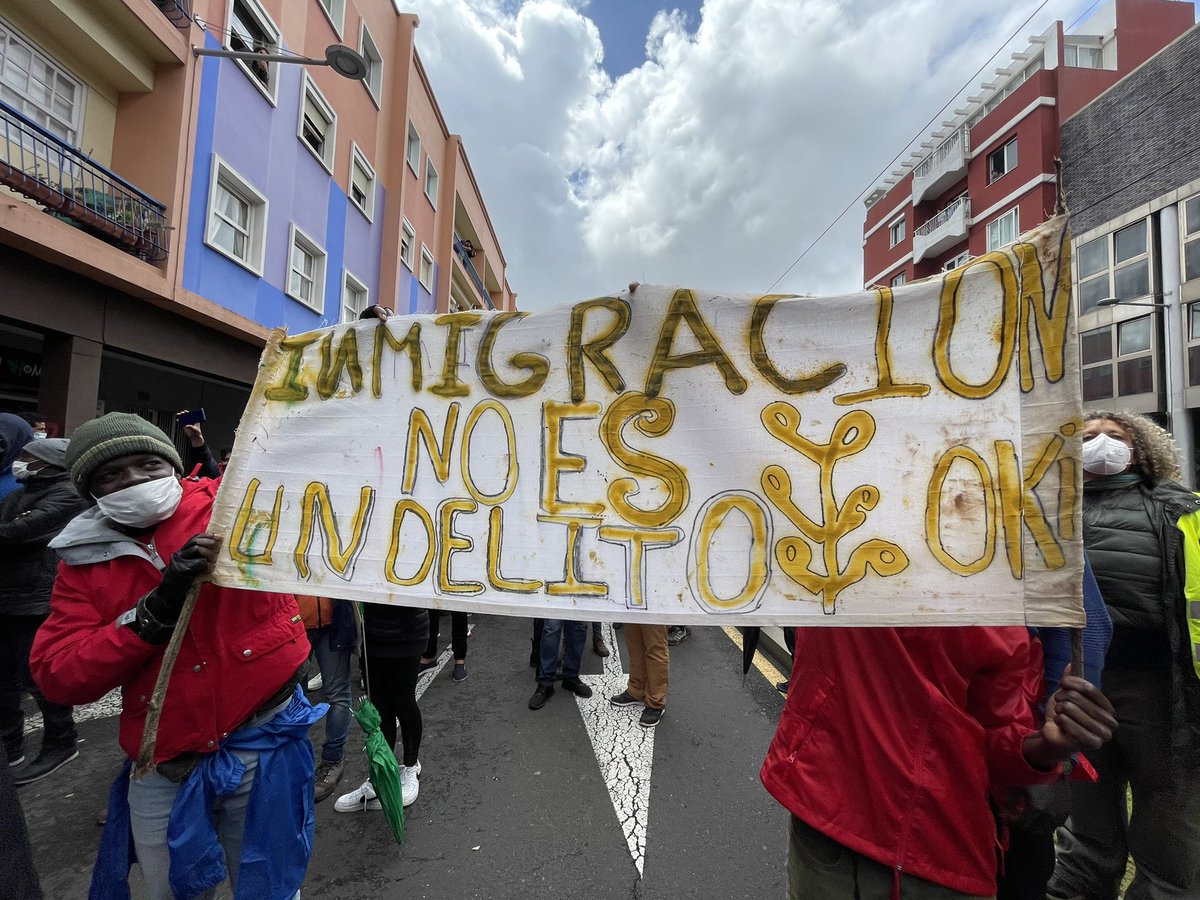 INMIGRACION
NO ES
UN DELITO
OKi